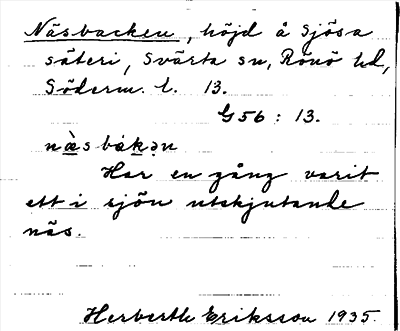 Näsbacken, höjd å Sjösa
säteri, Svärta sn, Rönö hd,
Söderm. l. 13.
G56 : 13.
nä̀sbák̠ən
Har en gång varit
ett i sjön utskjutande
näs.
Herberth Eriksson 1935